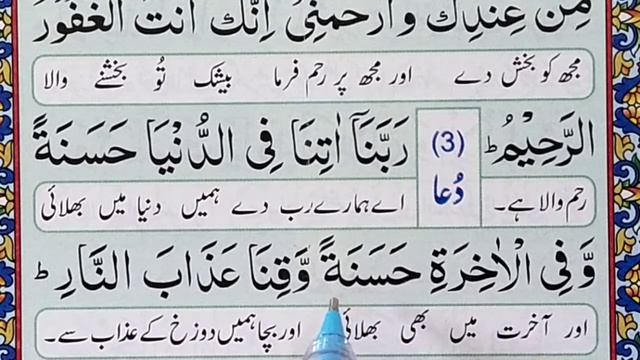 مِنْ عِنْدِكَ وَارْحَمْنِیْ اِنَّكَ اَنْتَ الْغَفُوْرُ
مجھ کو بخش دے اور مجھ پر رحم فرما بیشک تُو بخشنے والا
الرَّحِیْمُ ط (3) دُعا رَبَّنَاۤ اٰتِنَا فِی الدُّنْیَا حَسَنَةً
رحم والا ہے۔ اے ہمارے رب دے ہمیں دنیا میں بھلائی
وَّ فِی الْاٰخِرَةِ حَسَنَةً وَّقِنَا عَذَابَ النَّارِ ط
اور آخرت میں بھی بھلائی اور بچا ہمیں دوزخ کے عذاب سے۔